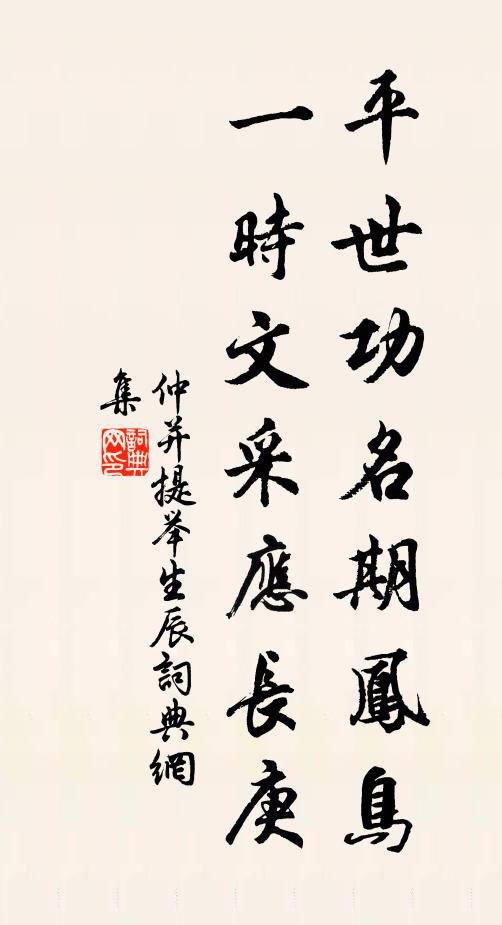 平世功名期鳳鳥
一時文采應長庚
仲并提举生辰詞典網
集
詞典
网印